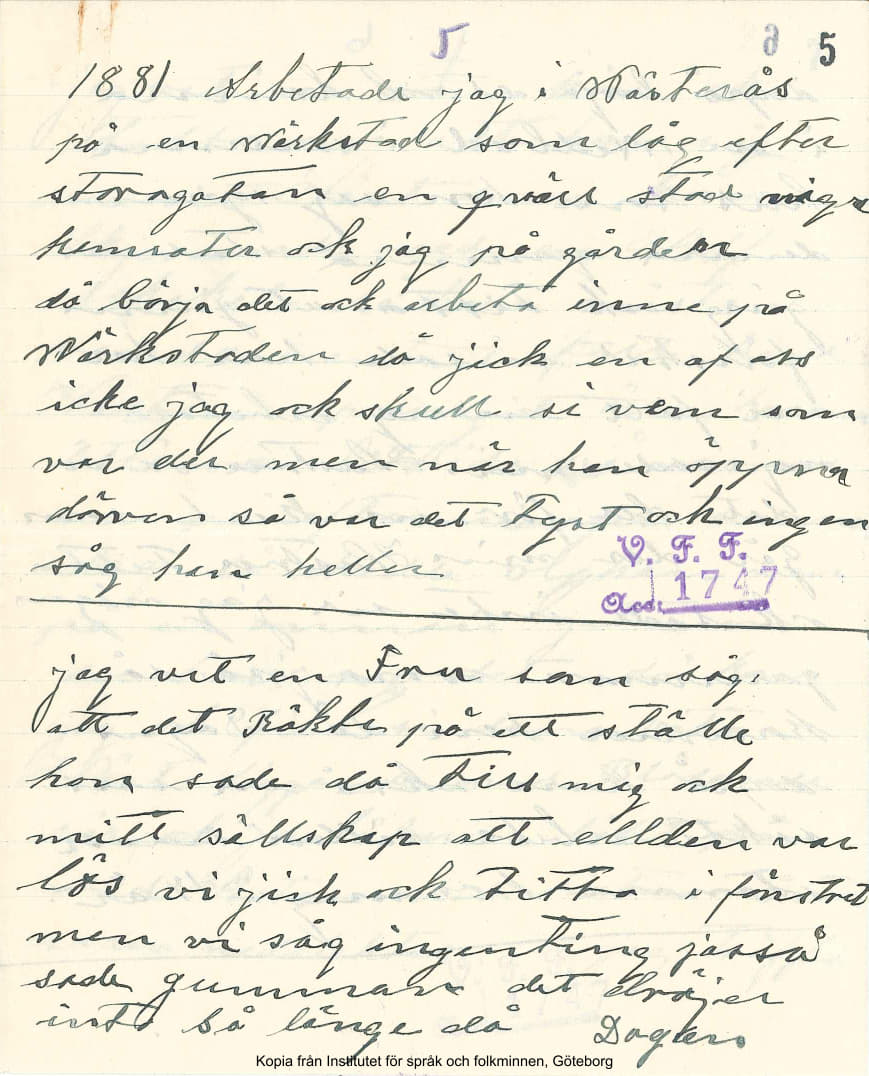 5 6 5
1881 Arbetade jag i Wästerås
på en Wärkstad som låg efter
storagatan en qväll stod några
kamrater ock jag på gården
då börja det ock arbeta inne på
Wärkstaden då jick en af oss
icke jag ock skull si vem som
var der men när han öppna
dörren så var det Tyst ock ingen
såg han heller
V. F. F.
Acc. 1747
jag vet en Fru som såg
att det Rökte på ett ställe
hon sade då Till mig ock
mitt sällskap att ellden var
lös vi jick ock Titta i fönstret
men vi såg ingenting jasså
sade gumman det dröjer
inte så länge då Dagen
Kopia från Institutet för språk och folkminnen, Göteborg